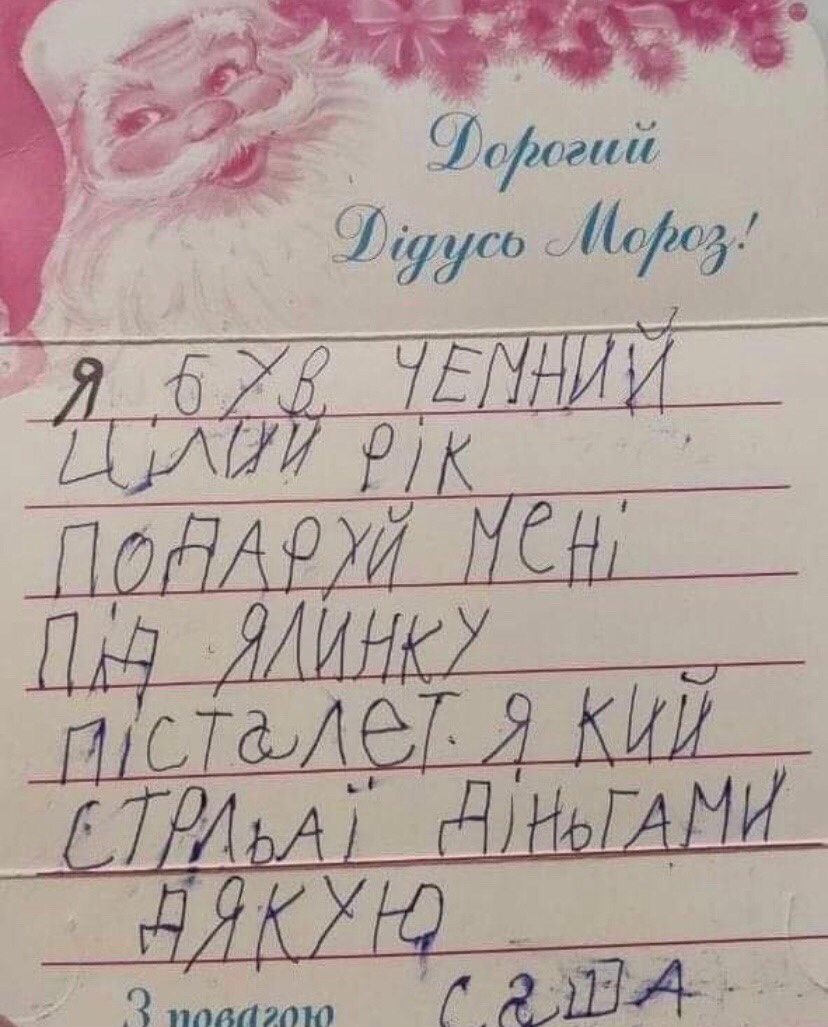 Дорогий
Дідусь Мороз!
Я БУВ ЧЕМНИЙ
ЦІЛИЙ РІК
ПОДАРУЙ МЕНІ
ПІД ЯЛИНКУ
ПІСТАЛЕТ Я КИЙ
СТРЛЬАЇ ДІНЬГАМИ
ДЯКУЮ
З повагою САША